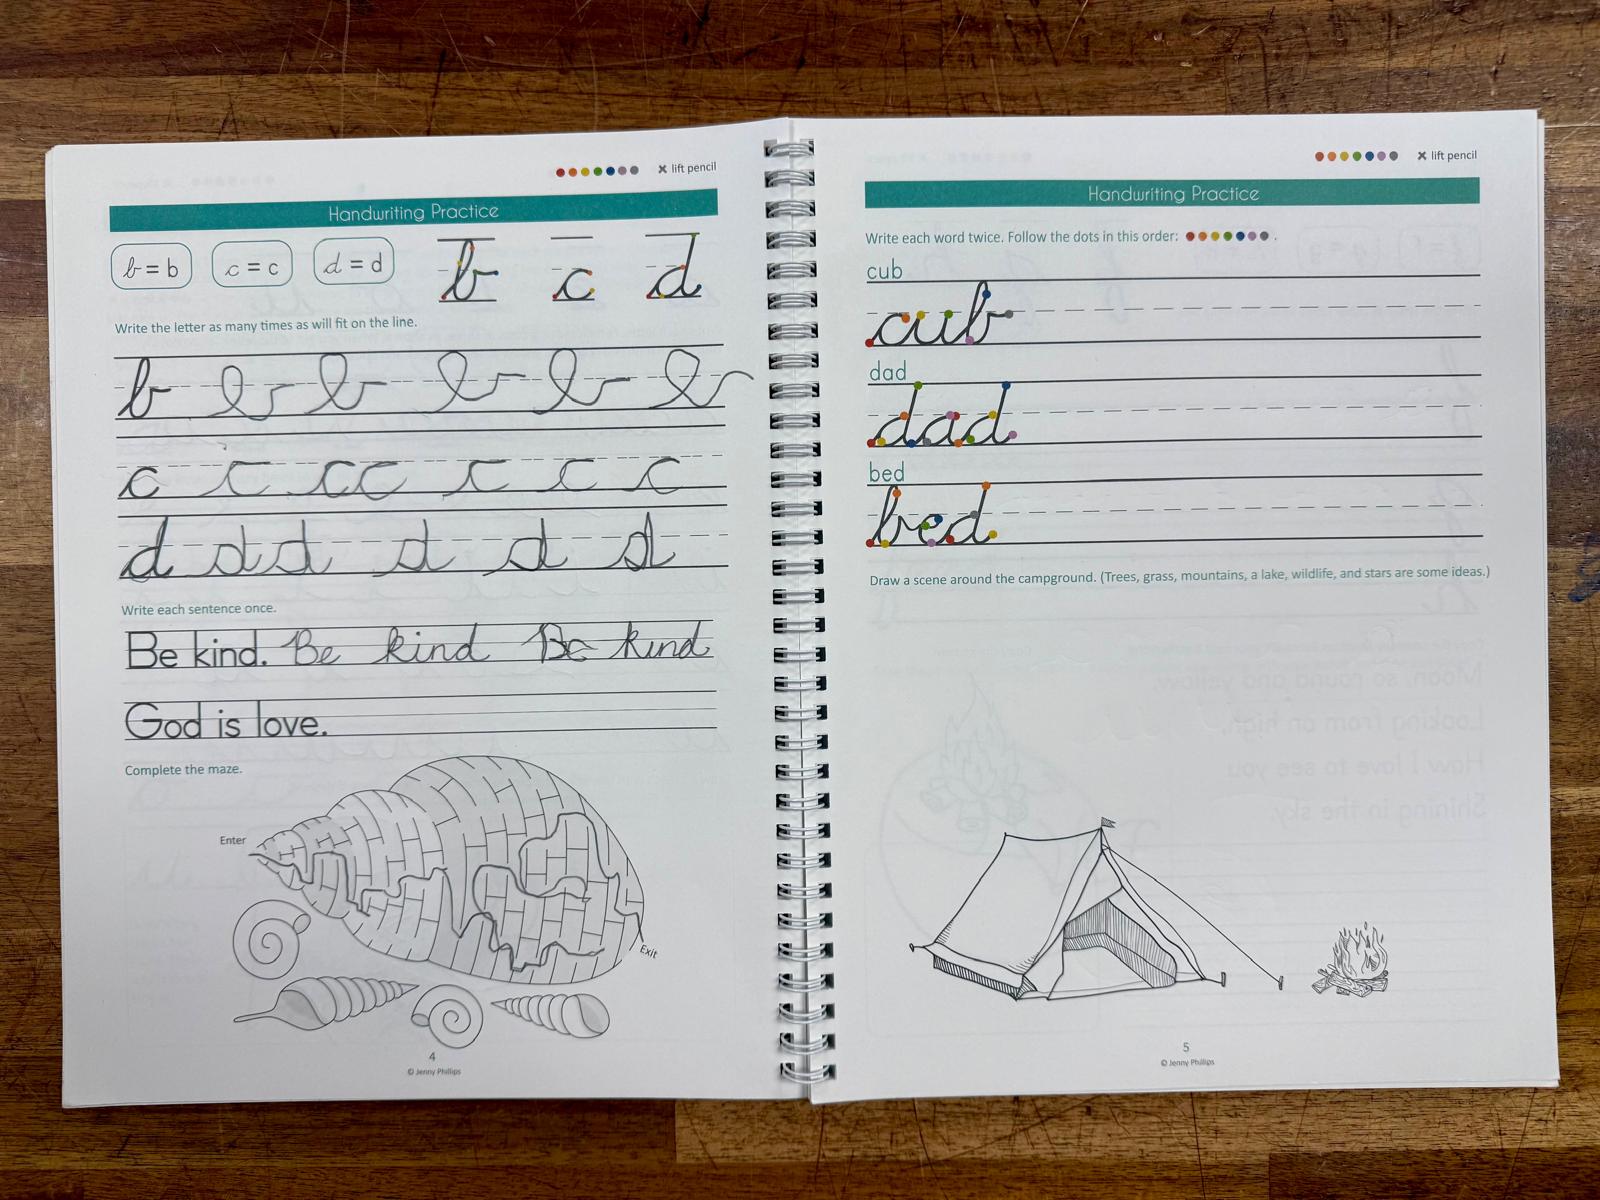 ✖ lift pencil
Handwriting Practice
b = b
c = c
d = d
b c d
Write the letter as many times as will fit on the line.
b b b b b b
c c c c c c c
d d d d d d
Write each sentence once.
Be kind. Be kind Be kind
God is love.
Complete the maze.
Enter
Exit
4
© Jenny Phillips
✖ lift pencil
Handwriting Practice
Write each word twice. Follow the dots in this order: .
cub
cub
dad
dad
bed
bed
Draw a scene around the campground. (Trees, grass, mountains, a lake, wildlife, and stars are some ideas.)
Moon, so round and yellow,
Looking from on high,
How I love to see you
Shining in the sky.
5
© Jenny Phillips